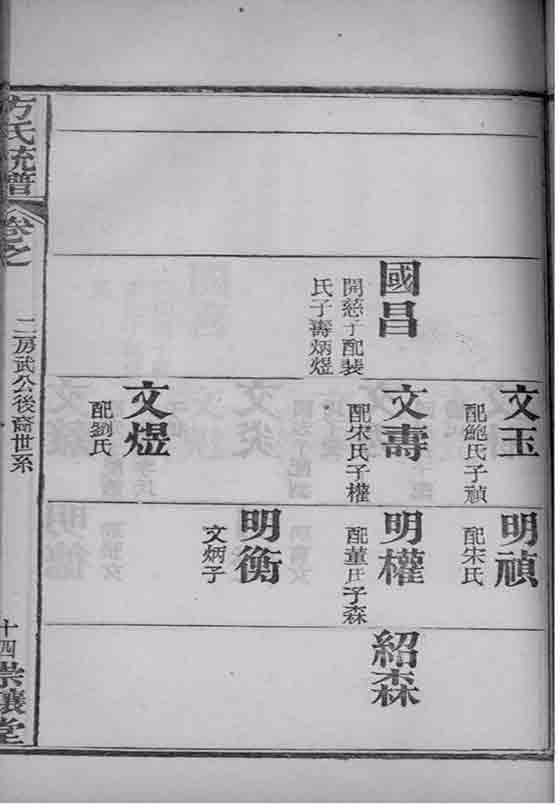 國昌
開慈子配裴
氏子壽炳煜
文玉
配鮑氏子禎
文壽
配宋氏子權
文煜
配劉氏
明禎
配宋氏
明權
配董氏子森
明衡
文炳子
紹森
方氏統譜
卷之
二房武公後裔世系
十四
崇讓堂